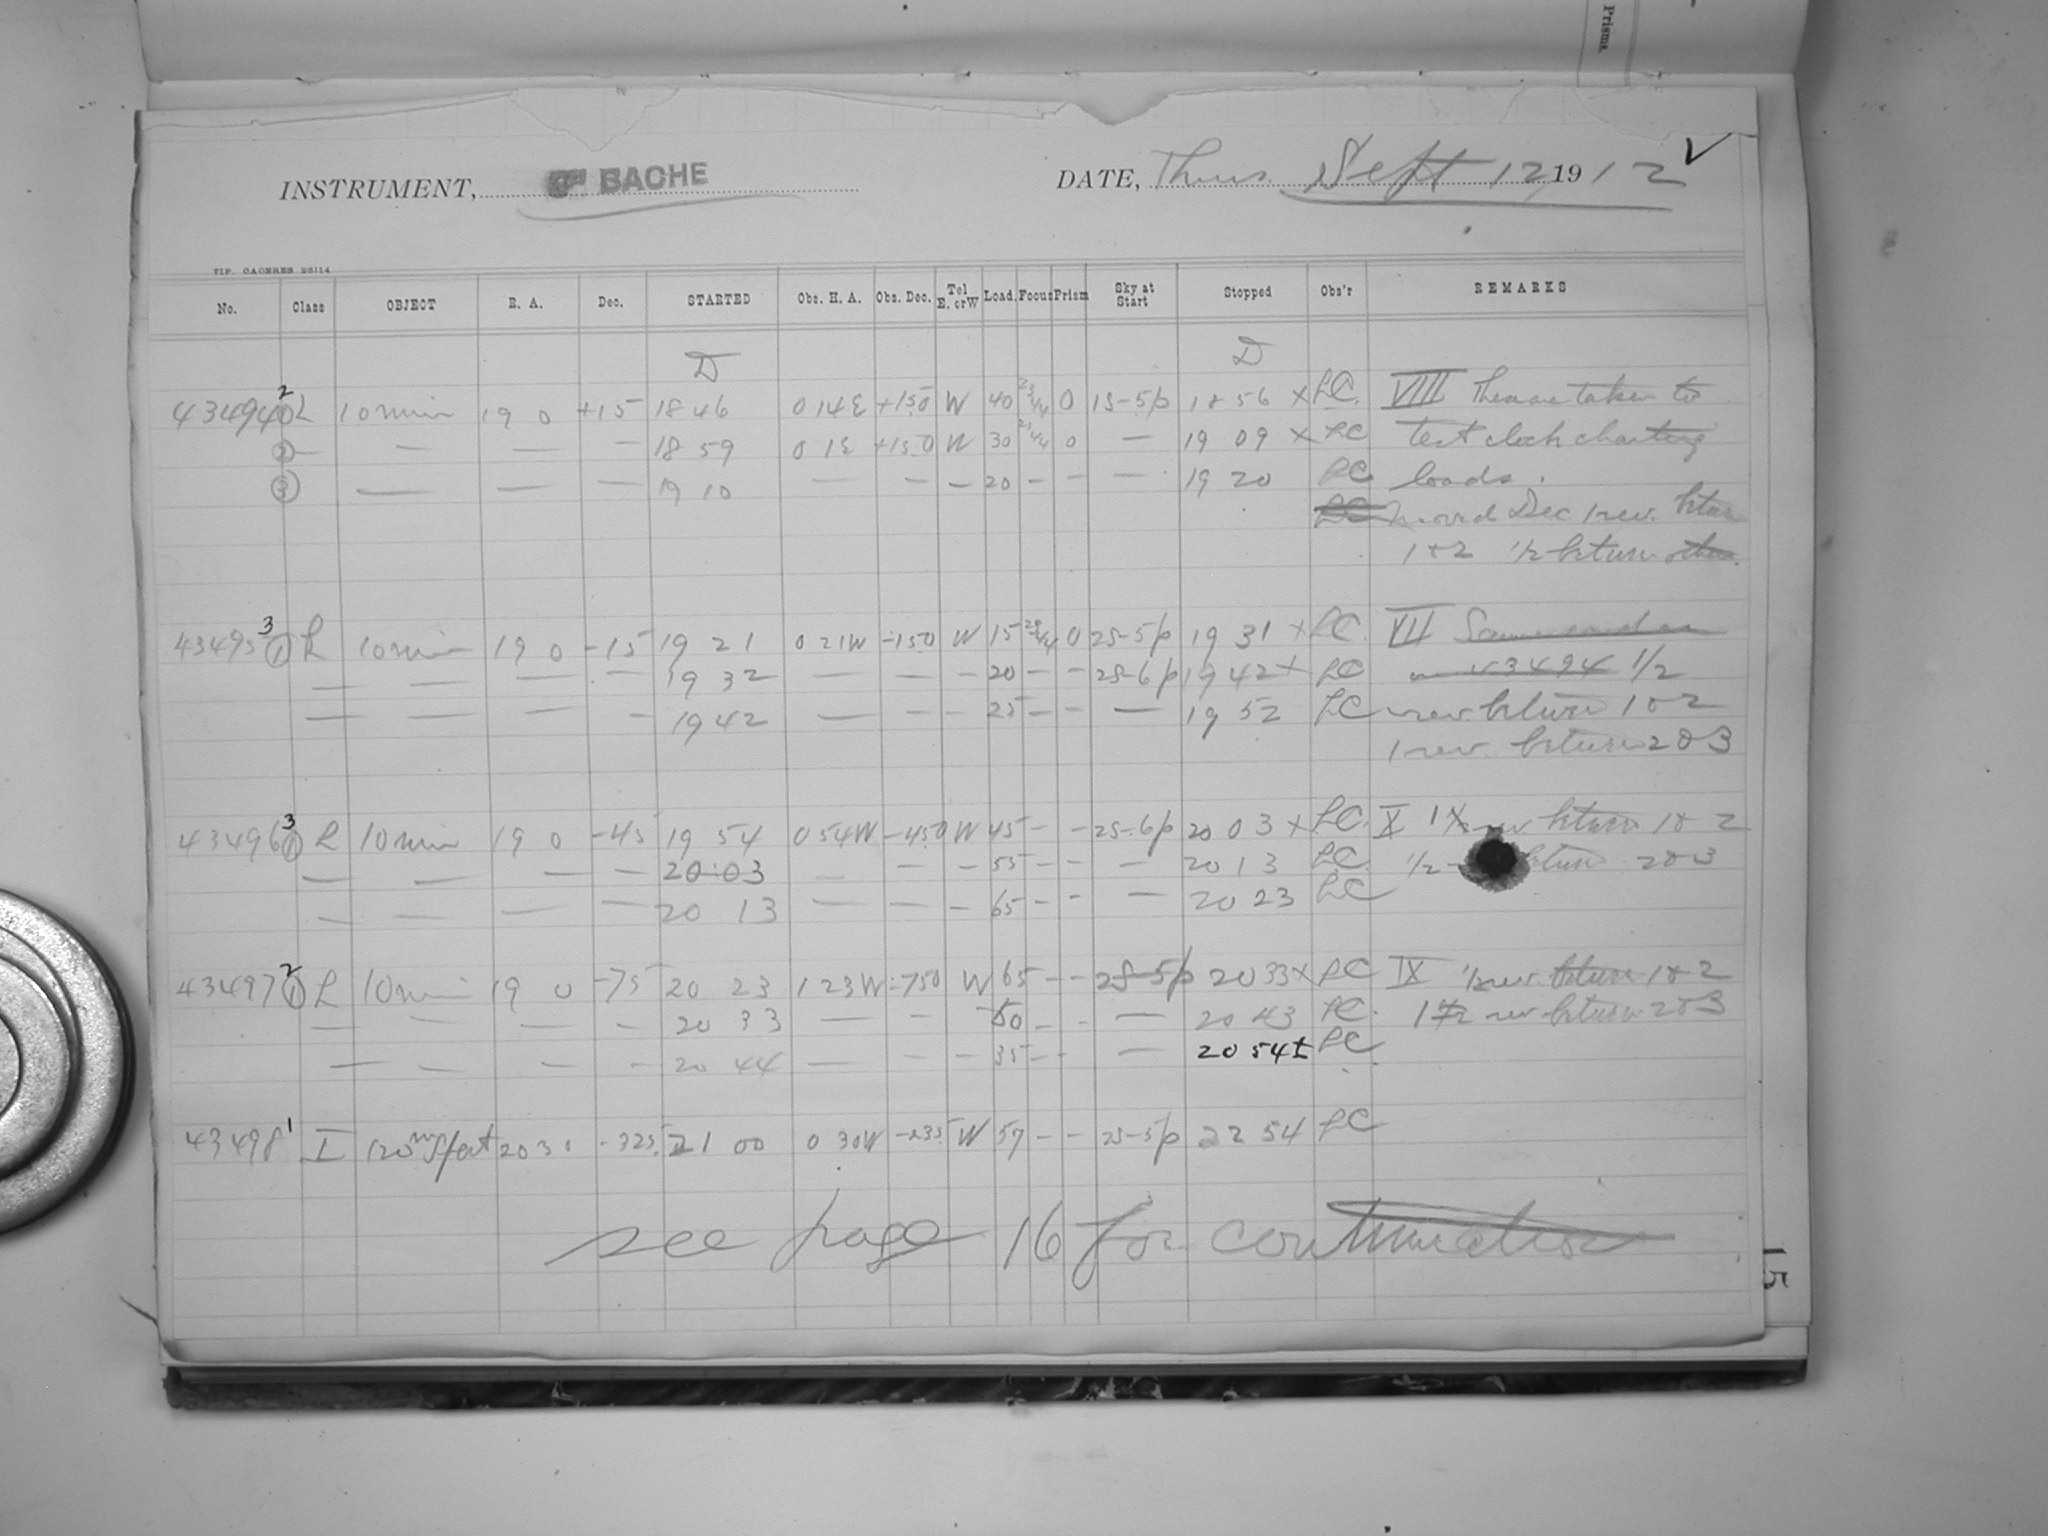 Prisma
INSTRUMENT, BACHE DATE, Thurs Sept 12, 1912 ✓
TIP. CACERES 26114
No. Class OBJECT R. A. Dec. STARTED Obs. H. A. Obs. Dec. Tel E. or W Load. Focus Prism Sky at Start Stopped Obs'r REMARKS
D D
43494 2 ① L 10 min 19 0 +15 18 46 0 14E +15.0 W 40 0 1S-5p 18 56 × LC. VIII These are taken to
② — — — — 18 59 0 1E +15.0 W 30 0 — 19 09 × LC test clock charting
③ — — — 19 10 — — — 20 - - — 19 20 LC loads.
LC moved Dec 1 rev. betw
1 & 2 1/2 between other
43495 3 ① L 10 min 19 0 -15 19 21 0 21W -15.0 W 15 0 2S-5p 19 31 × LC VII Same
— — — — 19 32 — — - 20 - - 2S-6p 19 42 × LC 43494 1/2
— — — — 19 42 — — - 25 - - — 19 52 LC rev between 1 & 2
1 rev. between 2 & 3
43496 3 ① L 10 min 19 0 -45 19 54 0 54W -45.0 W 45 - - 2S-6p 20 03 × LC. X 1 rev between 1 & 2
— — — — 20 03 — — - 55 - - — 20 13 LC. 1/2 between 2 & 3
— — — — 20 13 — — - 65 - - — 20 23 LC
43497 2 ① L 10 min 19 0 -75 20 23 1 23W -75.0 W 65 - - 2S-5p 20 33 × LC IX 1/2 rev between 1 & 2
— — — — 20 33 — — - 50 - - — 20 43 LC. 1 rev between 2 & 3
— — — — 20 44 — — - 35 - - — 20 54± LC
43498 1 I 120 m 20 30 -32.5 21 00 0 30W W 57 - - 2S-5p 22 54 LC
see page 16 for continuation
15